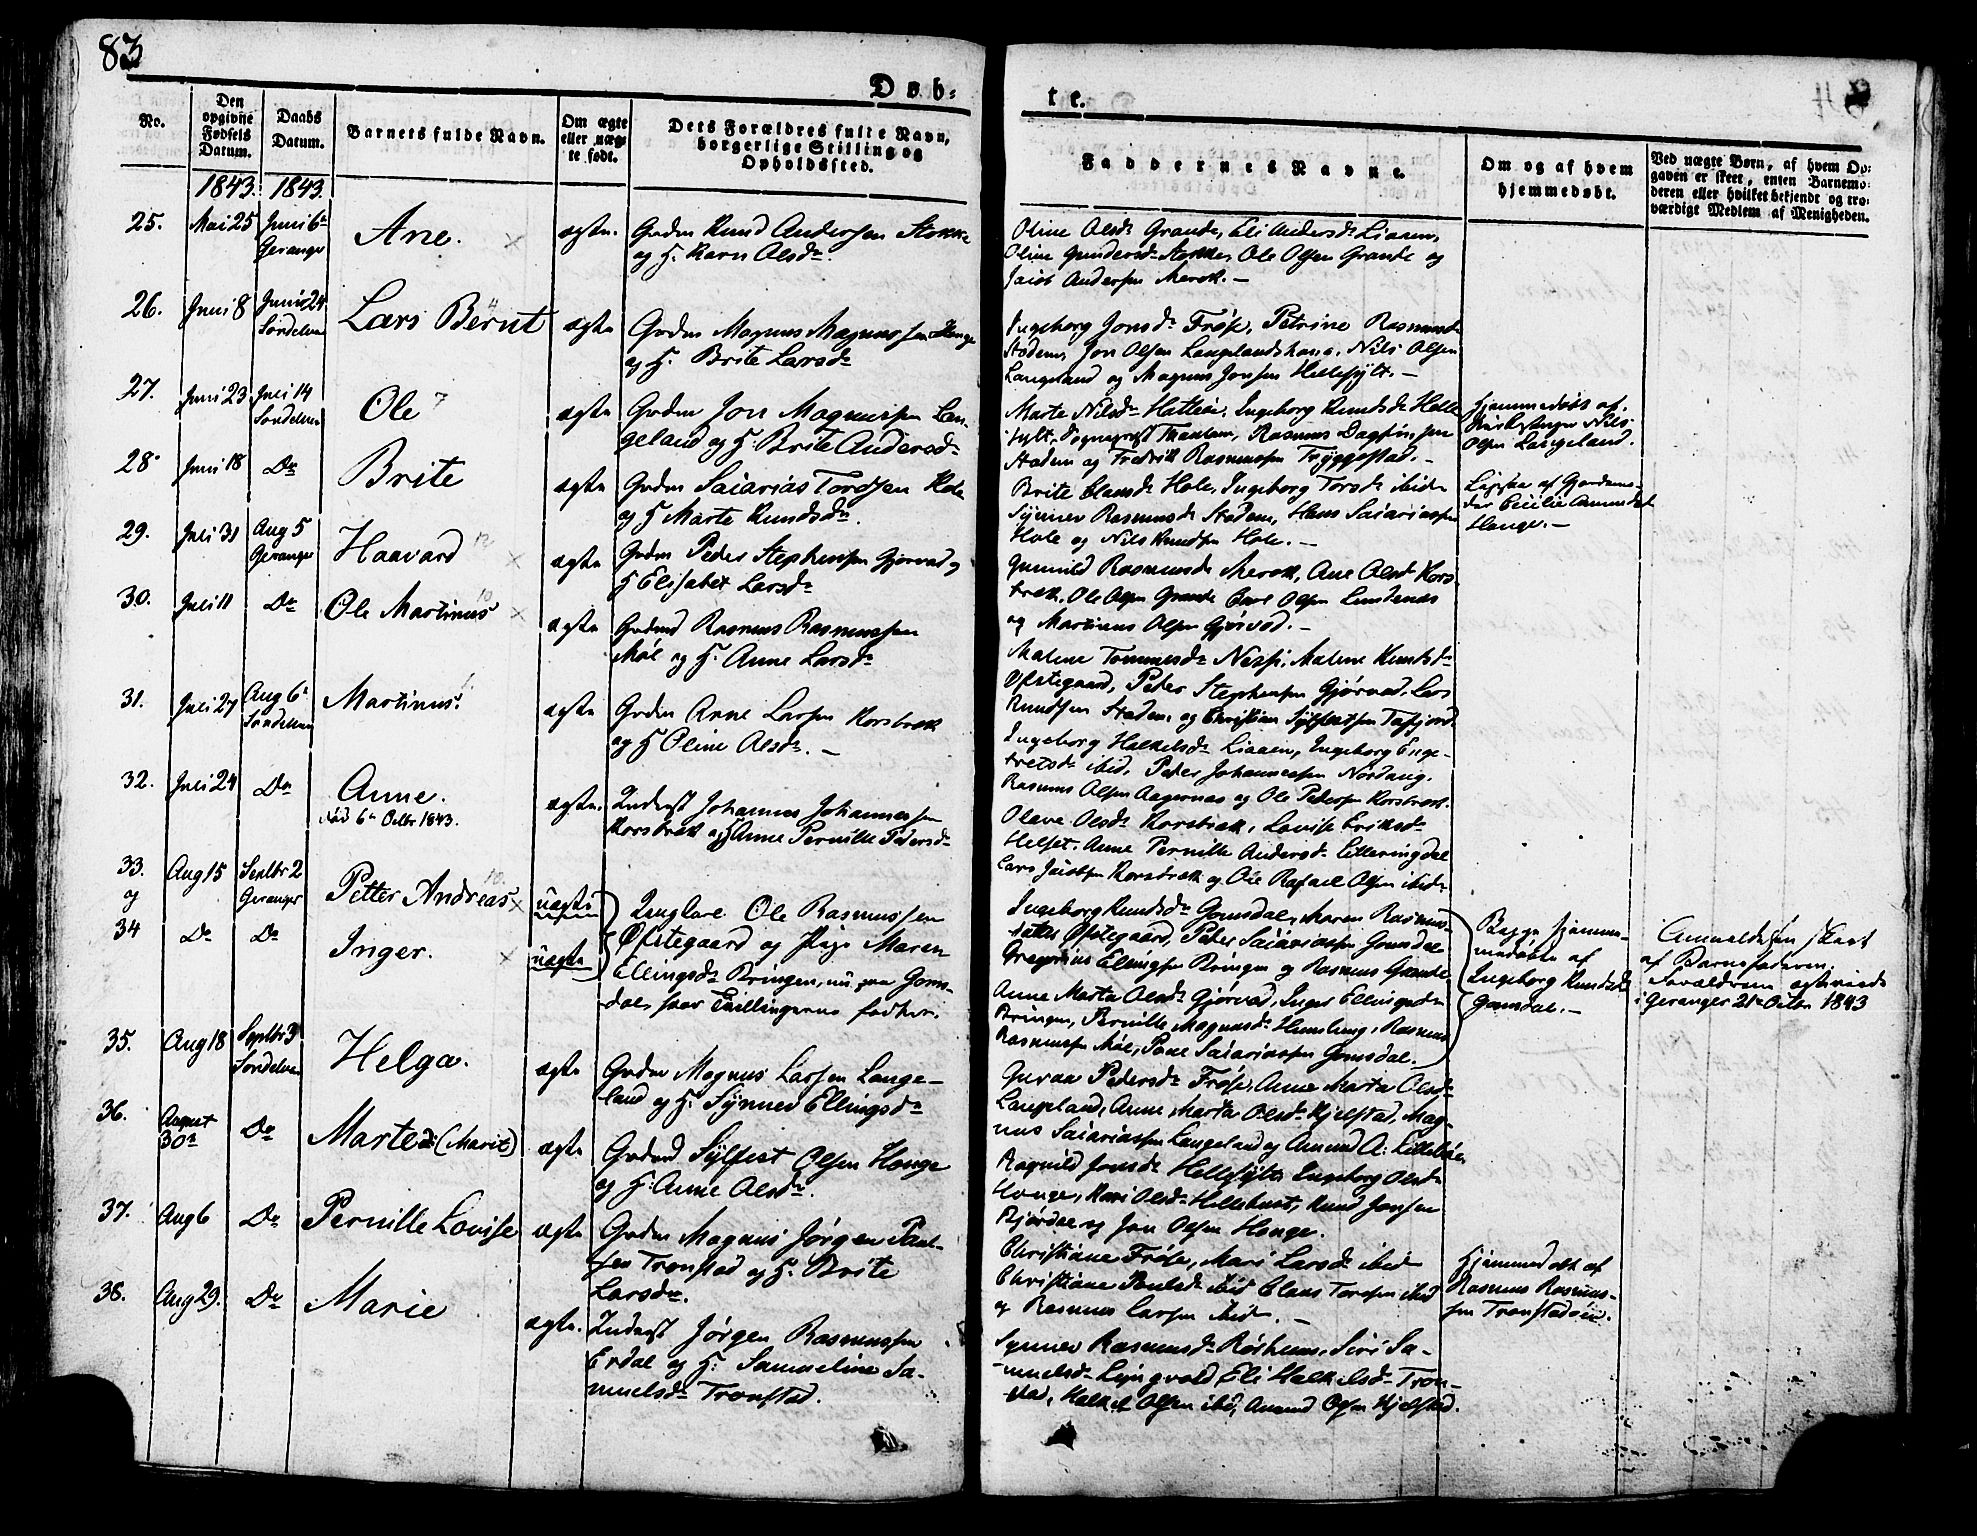 83
Døb-
te.
No.
Den opgivne Fødsels Datum.
Daabs Datum.
Barnets fulde Navn.
Om ægte eller uægte født.
Dets Forældres fulde Navn, borgerlige Stilling og Opholdssted.
Faddernes Navne.
Om og af hvem hjemmedøbt.
Ved uægte Børn, af hvem Opgaven er skeet, enten Barnemoderen eller hvilket bekjendt og troværdigt Medlem af Menigheden.
1843. 1843.
25. Mai 25 Juni 6te Geranger
Ane.
ægte.
Gdm Knud Andersen Stokke
og H. Karn Olsdr.
Oline Olsdr Grande, Eli Andersdr Liaaen,
Oline Gundersdr Stokke, Ole Olsen Grande og
Jacob Andersen Merok.—
26. Juni 8 Juni 24 Søndelven
Lars Bernt
ægte
Gdm Magnus Magnussen Houge
og H. Brite Larsdr
Ingeborg Jonsdr Frøse, Petrine Rasmusdr
Stadem, Jon Olsen Langelandshaug, Nils Olsen
Langeland og Magnus Jonsen Hellesylt.—
27. Juni 23 Juli 14 Søndelven
Ole
ægte
Gdm Jon Magnussen Lan-
geland og H. Brite Andersdr
Marte Nilsdr Hatlen, Ingeborg Knudsdr Helle-
sylt, Sognepræst Thaulow, Rasmus Dagfinsen
Stadem og Fredrik Rasmussen Tryggestad.—
Hjemmedøbt af
Kirkesanger Nils
Olsen Langeland.
28. Juni 18 Do
Brite
ægte
Gdm Saiarias Tordsen Hole
og H Marte Knudsdr.
Brite Clausdr Hole, Ingeborg Torsdr ibid
Synnev Rasmusdr Stadem, Hans Saiariassen
Hole og Nils Knudsen Hole.—
Ligesaa af Gjordemo-
der Cecilie Amundsdr
Houge.—
29. Juli 31 Aug 5 Geranger
Haavard
ægte
Gdm Peder Stephensen Gjørvad og
H Elisabet Larsdr
Gunnild Rasmusdr Merok, Ane Olsdr Kors-
bræk, Ole Olsen Grande Carl Olsen Lundenæs
og Martinus Olsen Gjørvad.—
30. Juli 11 Do
Ole Martinus
ægte
Gdmd Rasmus Rasmussen
Møl og H. Anne Larsdr
Malene Tommesdr Næss, Malene Knudsdr
Ofstegaard, Peder Stephensen Gjørvad, Lars
Knudsen Stadem, og Christian Sylfestsen Tafjord.
31. Juli 27 Aug 6te Søndelven
Martinus.
ægte
Gdm Arne Larsen Korsbræk
og H Oline Olsdr.—
Ingeborg Halkelsdr Liaaen, Ingeborg Enge-
bretsdr ibid, Peder Johannessen Nordang,
Rasmus Olsen Aagernæs og Ole Pedersen Korsbræk.
32. Juli 24 Do
Anne.
Død 6te Octbr 1843.
ægte.
Inderst Johannes Johannessen
Korsbræk og H Anne Pernille Pedersdr
Olave Olsdr Korsbræk, Lovise Eriksdr
Helset, Anne Pernille Andersdr Litleringdal
Lars Jacobsen Korsbræk og Ole Rafael Olsen ibid
33. Aug 15 Septbr 2 Geranger
og
Petter Andreas
uægte
34 Do Do
Inger.
uægte
Ungkarl Ole Rasmussen
Ofstegaard og Pige Maren
Ellingsdr Bringen, nu paa Goms-
dal, har Tvillingerne fødte.
Ingeborg Knudsdr Gomsdal, Maren Rasmus-
datter Ofstegaard, Peder Saiariassen Gomsdal
Gregorius Ellingsen Bringen og Rasmus Grande
Anne Marta Olsdr Gjørvad, Inger Ellingsdr
Bringen, Pernille Magnusdr Humlung, Rasmus
Rasmussen Møl, Paul Saiariassen Gomsdal.
Begge hjemme-
medøbte af
Ingeborg Knudsdr
Gomsdal.—
Anmeldelsen skeet
af Barnefaderen.
Forældrene ægteviede
i Geranger 21de Octbr 1843
35. Aug 18 Septbr 3 Søndelven
Helga.
ægte
Gdm Magnus Larsen Lange-
land og H. Synnev Ellingsdr
Guroa Pedersdr Frøse, Anne Marta Olsdr
Langeland, Anne Marta Olsdr Kjelstad, Mag-
nus Saiariassen Langeland og Amund A. Litlebøen
36. August 30te Do
Marte (Marit)
ægte
Gdmd Sylfest Olsen Houge
og H. Anne Olsdr.
Ragnild Jonsdr Hellesylt, Ingeborg Olsdr
Houge, Kari Olsdr Hellehust, Knud Jonsen
Bjørdal og Jon Olsen Houge.
37. Aug 6 Do
Pernille Lovise
ægte
Gdm Magnus Jørgen Paul-
sen Tronstad og H. Brite
Larsdr.
Christiane Frøse, Mari Larsdr ibid
Christiane Paulsdr ibid Claus Torsen ibid
og Rasmus Larsen ibid.—
Hjemmedøbt af
Rasmus Rasmus-
sen Tronstadvig.
38. Aug 29. Do
Marie
ægte.
Inderst Jørgen Rasmussen
Erdal og H. Sammeline Sa-
muelsdr Tronstad.
Synnev Rasmusdr Røshuns, Siri Sa-
muelsdr Lyngvold Eli Halkelsdr Tron-
stad, Halkel Olsen ibid, Amund Olsen Kjelstad.